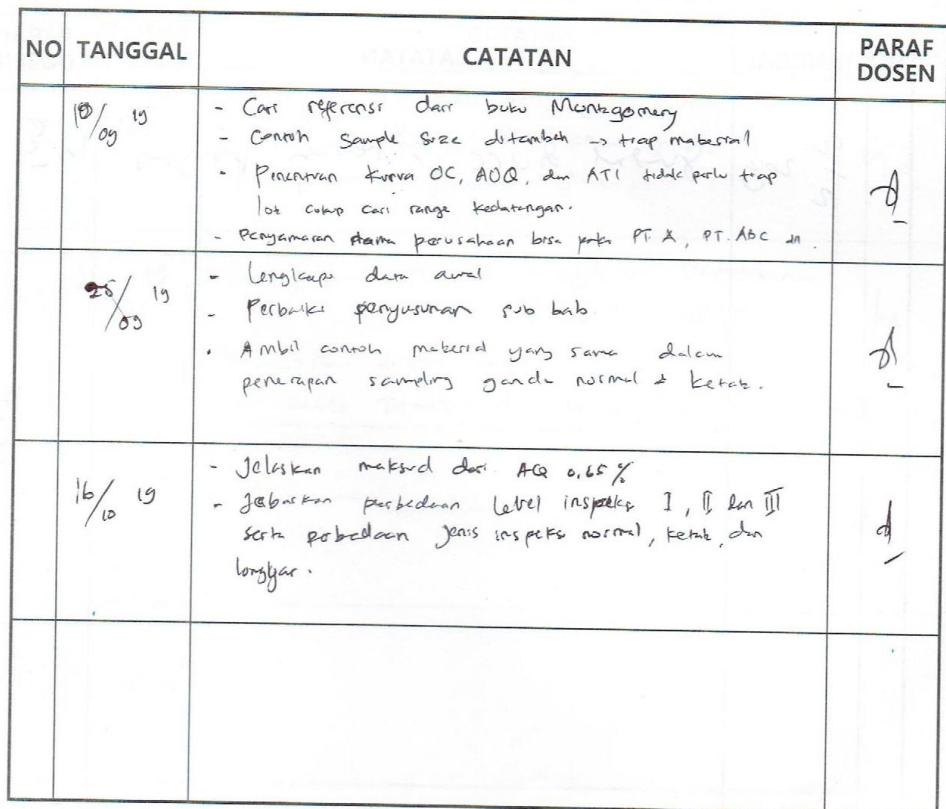 NO TANGGAL CATATAN PARAF DOSEN
18/09 19
- Cari referensi dari buku Montgomery
- Contoh Sample Size ditambah → tiap material
- Penentuan Kurva OC, AOQ, dan ATI tidak perlu tiap
lot cukup cari range kedatangan.
- Penyamaran nama perusahaan bisa PT. A, PT. ABC
25/09 19
- Lengkapi data awal
- Perbaiki penyusunan sub bab
- Ambil contoh material yang sama dalam
penerapan sampling ganda normal & ketat.
16/10 19
- Jelaskan maksud dari AQ 0,65 %
- Jabarkan perbedaan level inspeksi I, II dan III
serta perbedaan jenis inspeksi normal, ketat, dan
longgar.